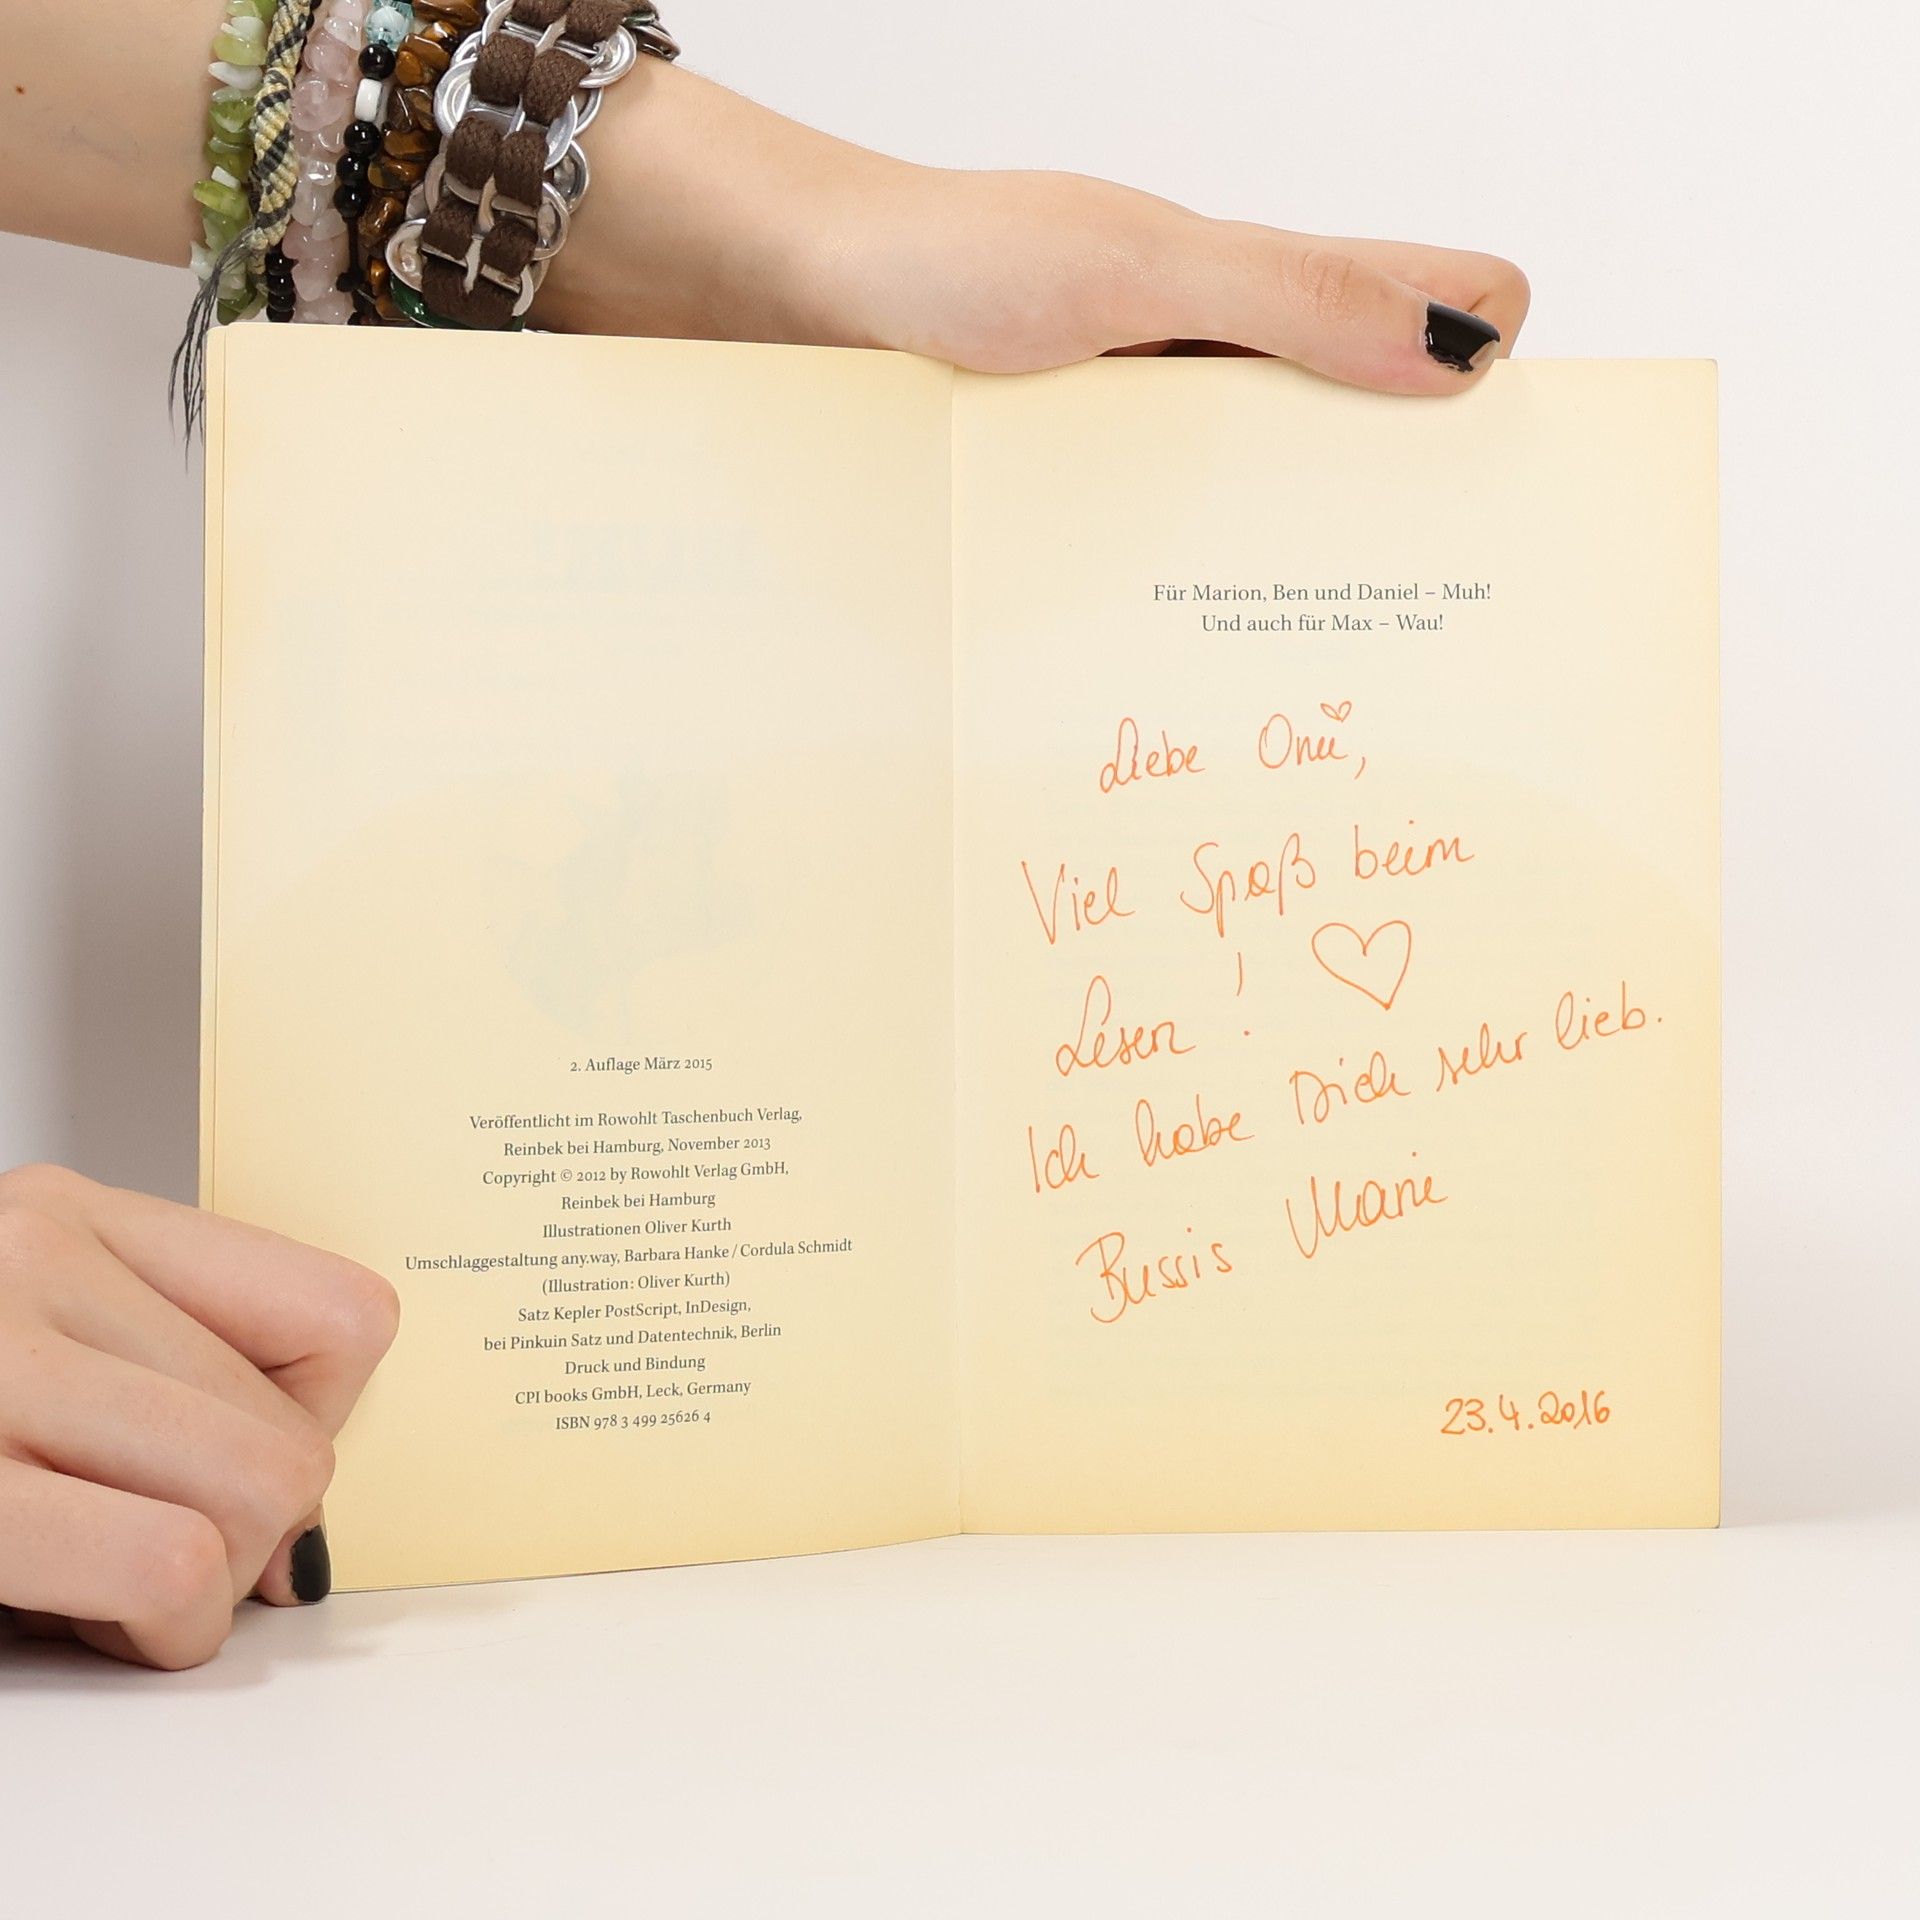 2. Auflage März 2015
Veröffentlicht im Rowohlt Taschenbuch Verlag,
Reinbek bei Hamburg, November 2013
Copyright © 2012 by Rowohlt Verlag GmbH,
Reinbek bei Hamburg
Illustrationen Oliver Kurth
Umschlaggestaltung any.way, Barbara Hanke / Cordula Schmidt
(Illustration: Oliver Kurth)
Satz Kepler PostScript, InDesign,
bei Pinkuin Satz und Datentechnik, Berlin
Druck und Bindung
CPI books GmbH, Leck, Germany
ISBN 978 3 499 25626 4
Für Marion, Ben und Daniel – Muh!
Und auch für Max – Wau!
Liebe
Viel Spaß beim
Lesen!
Ich habe Dich sehr lieb.
Bussis Marie
23.4.2016